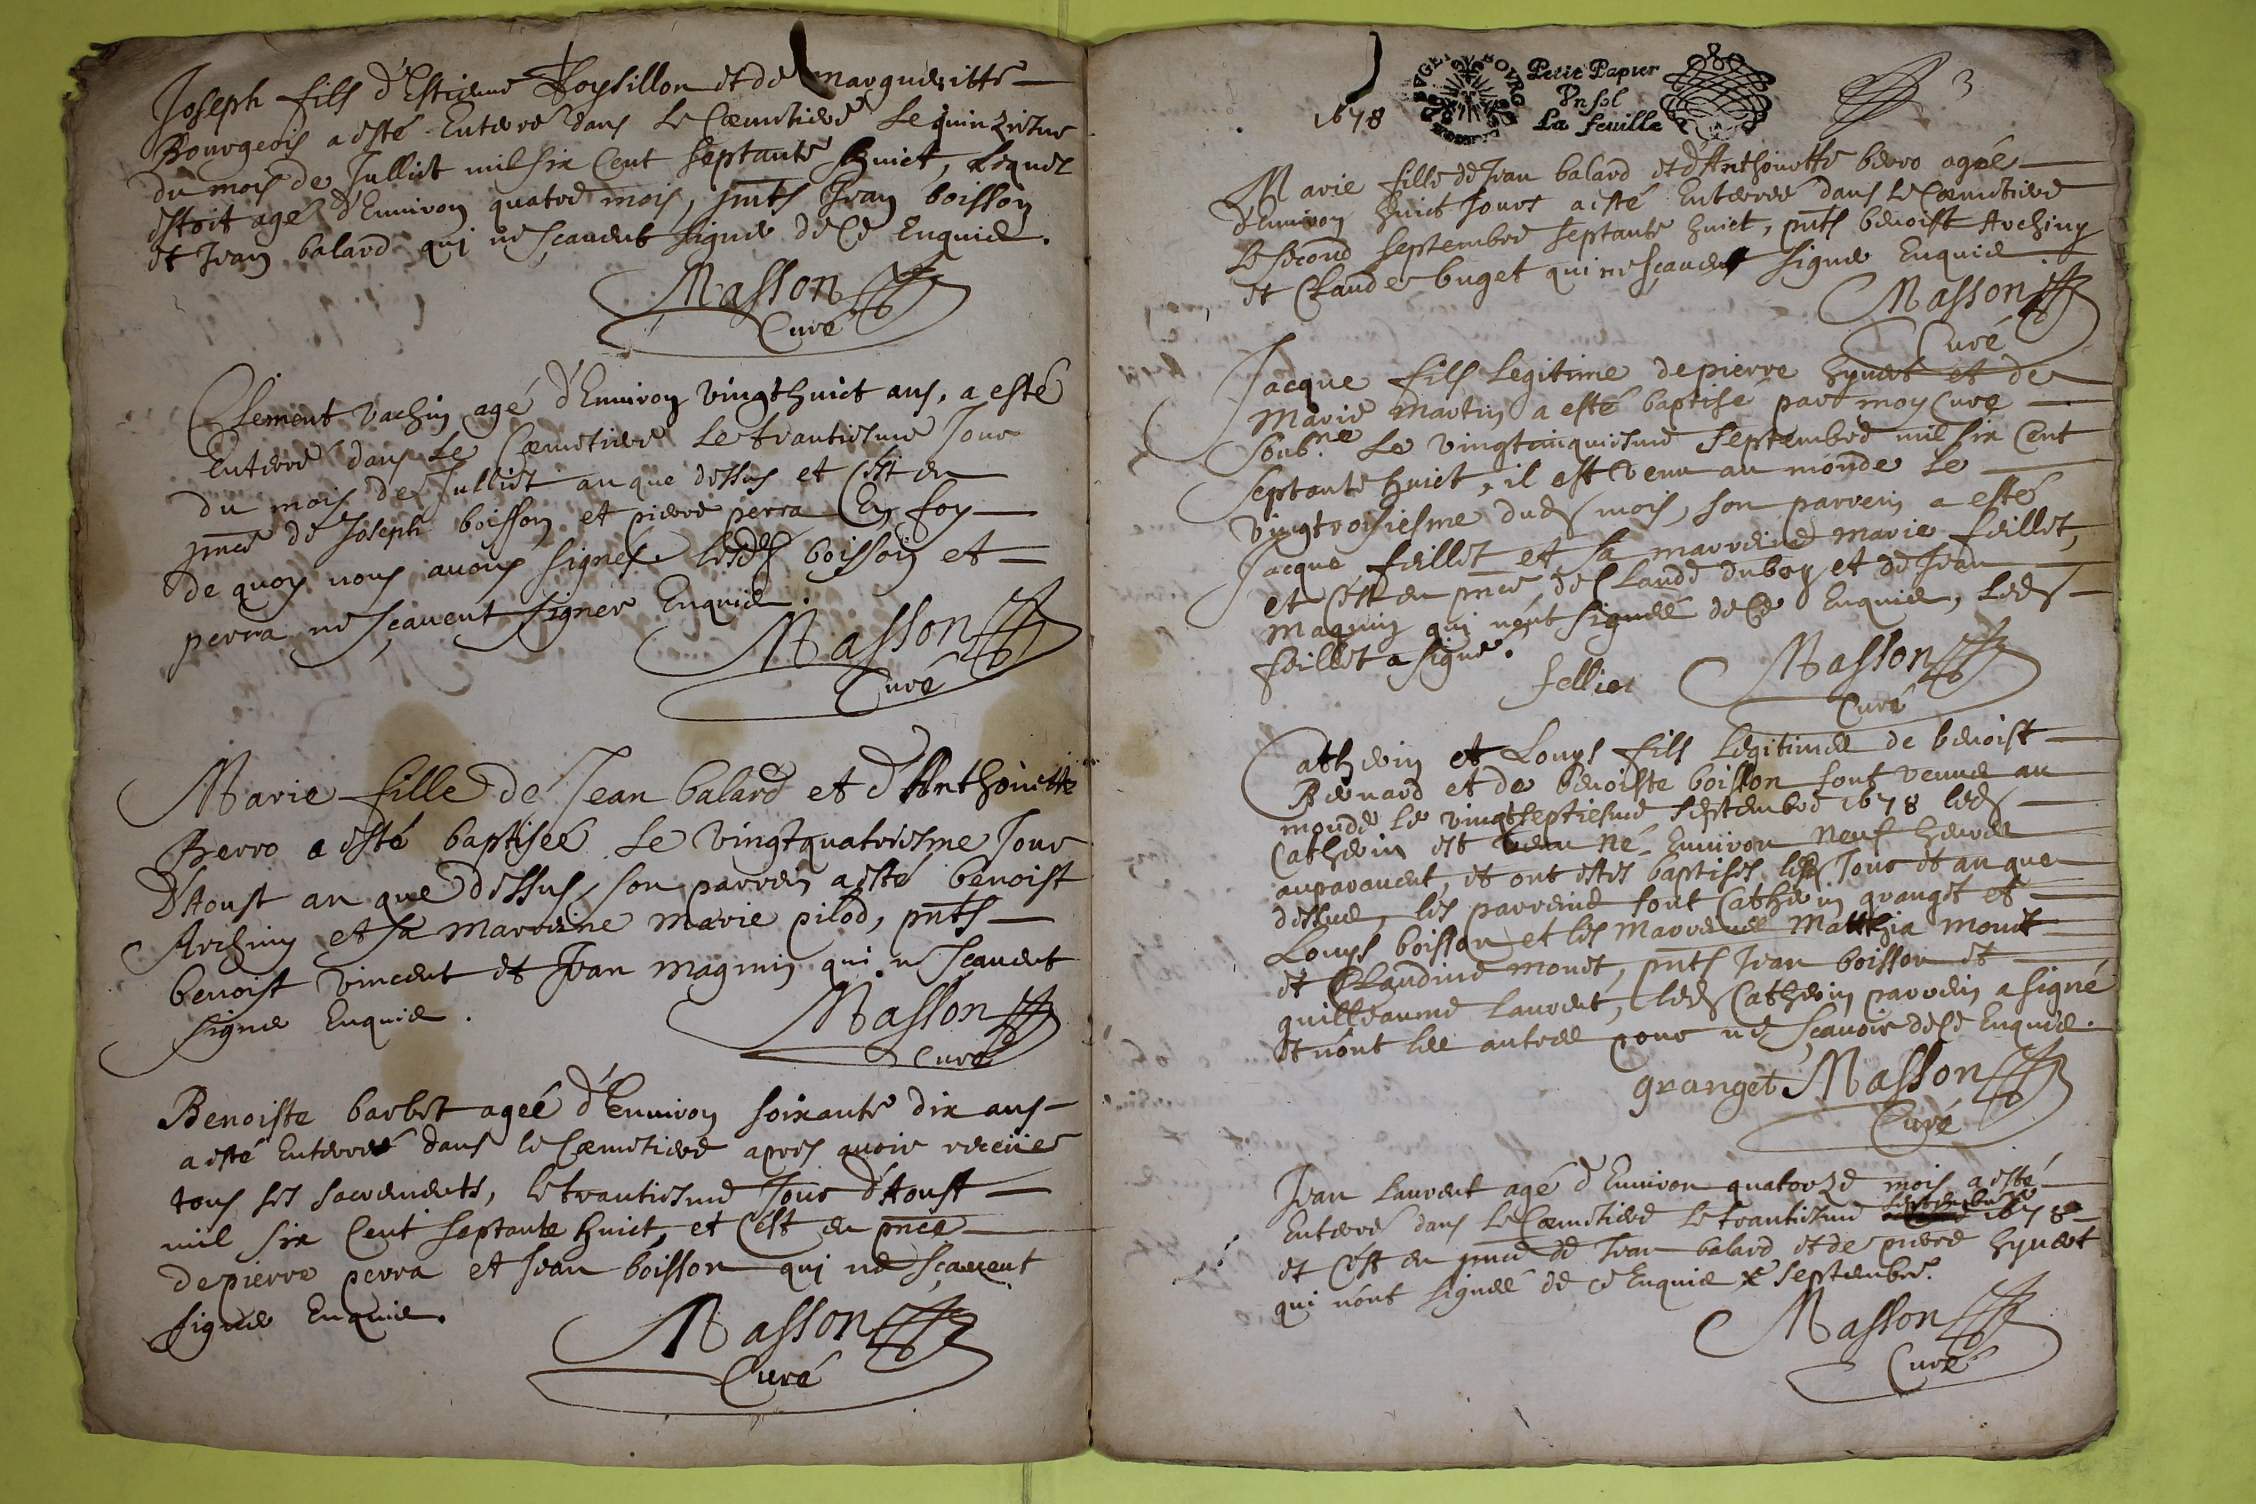 Joseph fils d'Estienne Foysillon et de margueritte
Bourgeois a esté Enterré dans le Cœmetiere le quinziesme
du mois de Julliet mil six Cent septante huict, lequel
estoit agé d'Enuiron quatre mois, pnts Jean boisson
et Jean balard qui ne sçauent signer de Ce Enquis.
Masson
Curé
Clement vachin agé d'Enuiron vingt huict ans, a esté
Enterré dans le Cœmetiere le trantiesme Jour
du mois de Julliet an que dessus et C'est en
pnce de Joseph boisson et pierre perra En foy
de quoy nous auons signés. lesds boisson et
perra ne sçauent signer Enquis.
Masson
Curé
Marie fille de Jean balard et d'Anthoinette
Berro a esté baptiseé le vingtquatriesme Jour
d'Aoust an que dessus, son parrein a esté benoist
Archiny et sa marreine marie pilod, pnts
benoist vincent et Jean magnin qui ne sçauent
signer Enquis.
Masson
Curé
Benoiste barbet ageé d'Enuiron soixante dix ans
a esté Enterreé dans le Cœmetiere apres auoir receüe
tous ses sacrements, le trantiesme Jour d'Aoust
mil six Cent septante huict, et C'est en pnce
de pierre perra et Jean boisson qui ne sçauent
signer Enquis.
Masson
Curé
1678
BOVRG
Petit Papier
Vn sol
La feuille
3
Marie fille de Jean balard et d'Anthoinette berro ageé
d'Enuiron huict Jours a esté Enterreé dans le Cœmetiere
le second septembre septante huict, pnts benoist Archiny
et Claude buget qui ne sçauent signer Enquis
Masson
Curé
Jacque fils legitime de pierre hyuert et de
Marie martin a esté baptisé par moy Curé
soub.né le vingtcinquiesme septembre mil six Cent
septante huict, il est venu au monde le
vingtroisiesme duds mois, son parrein a esté
Jacque feillet et sa marreine marie feillet,
et C'est en pnce de Claude duboy et de Jean
magnin qui n'ont signés de Ce Enquis, leds
feillet a signé.
felliet
Masson
Curé
Catherin et Louys fils legitimes de benoist
Bernard et de benoiste boisson sont venus au
monde le vingtseptiesme septembre 1678 leds
Catherin est né Enuiron neuf heures
auparauent, et ont estés baptisés lesds Jour et an que
dessus, les parreins sont Catherin granget et
Louys boisson et les marreines Matthia monet
et Claudine monet, pnts Jean boisson et
guilleaume laurent, leds Catherin parrein a signé
et n'ont les autres pour ne sçauoir de Ce Enquis.
granget
Masson
Curé
Jean laurent agé d'Enuiron quatorze mois a esté
Enterré dans le Cœmetiere le trantiesme septembre 1678
et C'est en pnce de Jean balard et de pierre hyuert
qui n'ont signés de ce Enquis x septembre.
Masson
Curé